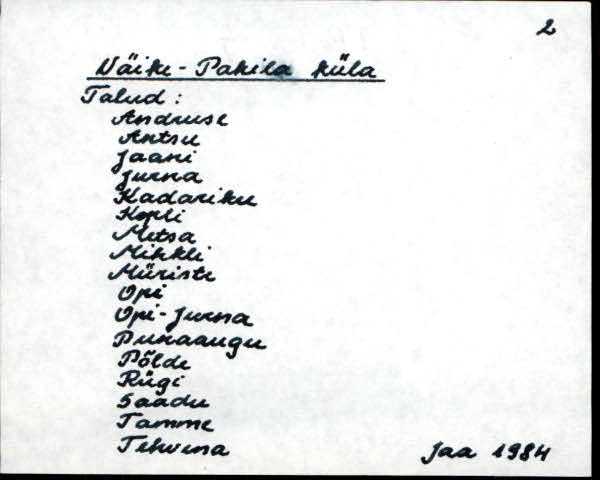 2
Väike-Pahila küla
Talud:
Andruse
Antsu
Jaani
Jurna
Kadariku
Kopli
Metsa
Mihkli
Müriste
Opi
Opi-Jurna
Punaaugu
Põlde
Rügi
Saadu
Tamme
Tehvena
Jaa 1984